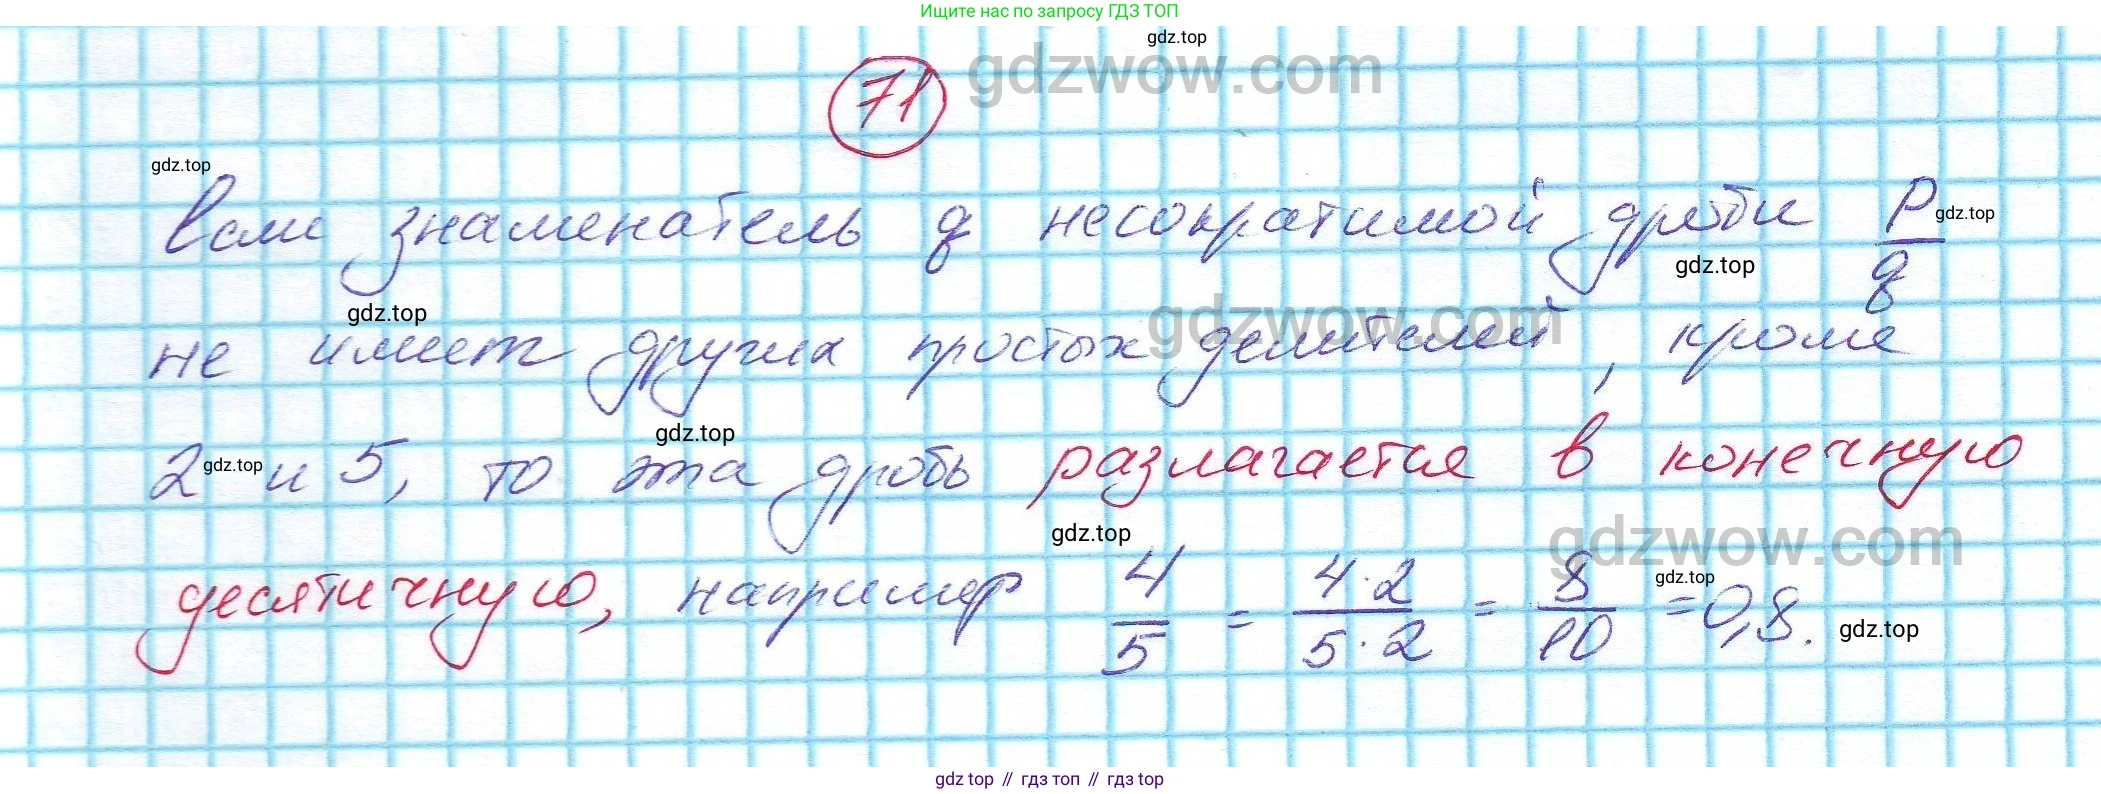 Ищите нас по запросу ГДЗ ТОП
gdz.top
gdzwow.com
71
gdz.top
Если знаменатель q несократимой дроби p/q
gdz.top
gdz.top
gdz.top
gdzwow.com
не имеет других простых делителей, кроме
gdz.top
2 и 5, то эта дробь разлагается в конечную
gdz.top
gdz.top
gdzwow.com
десятичную, например 4/5 = 4·2/5·2 = 8/10 = 0,8.
gdz.top
gdz.top
gdz top // гдз топ // гдз top